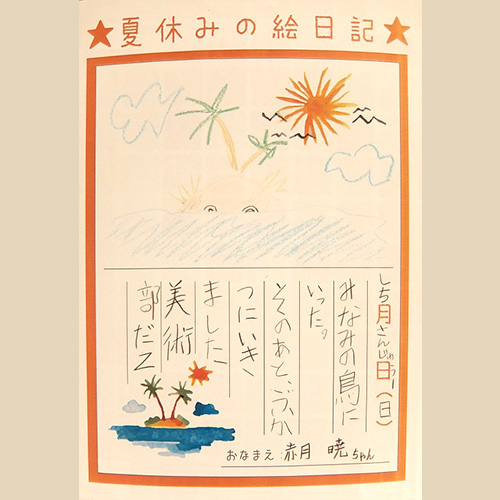 ★夏休みの絵日記★
しち月さんじゅうー日(日)
みなみの鳥に
いった。
そのあと、ぶか
つにいき
ました
美術
部だZ
おなまえ:赤月 暁ちゃん